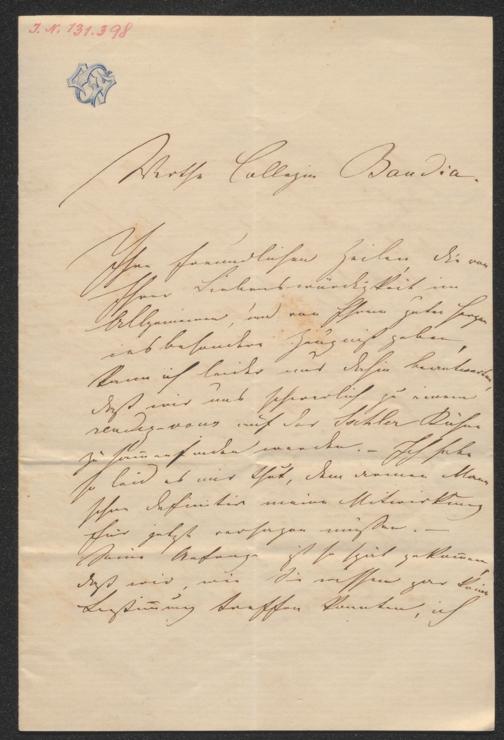 I. N. 131.398
Werthe Collegin Baudia.
Ihre freundlichen Zeilen, die von
Ihrer Liebenswürdigkeit im
Allgemeinen, und von Ihrem guten Herzen
insbesondere Zeugniß geben,
kann ich leider nur dahin beantworten,
daß wir uns schwerlich zu einem
rendez-vous auf der Ischler Bühne
zusammenfinden werden. – Ich habe
so leid es mir thut, dem armen Mann
schon definitiv meine Mitwirkung
für jetzt versagen müssen. –
Seine Anfrage ist so spät gekommen,
daß wir, wie Sie wissen gar keine
Bestimmung treffen konnten, ich